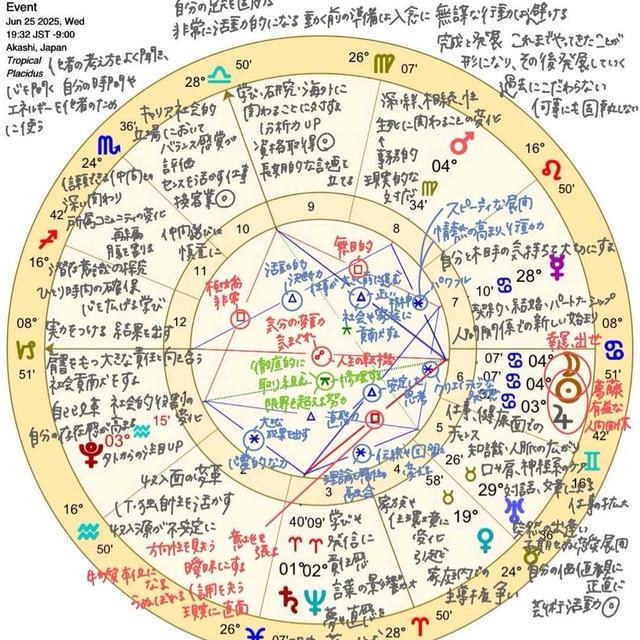 Event
Jun 25 2025, Wed
19:32 JST -9:00
Akashi, Japan
Tropical
Placidus
非常に活動的になる 動く前の準備は入念に 無謀な行動は避ける
完成と発展 これまでやってきたことが
形になり、その後発展していく
過去にこだわらない
何事にも固執しない
他者の考え方をよく聞き、
心を開く 自分の時間や
エネルギーを他者のため
に使う
28° 50'
26° 07'
学び・研究・海外に
関わることに対する
分析力UP
資格取得
長期的な計画を
立てる
キャリア・社会的
立場において
バランス感覚が
評価
センスを活かす仕事
接客業
深い絆、相続、性
生死に関わることの変化
事務的
現実的な
対応
04°
34'
16°
50'
36'
24°
信頼できる仲間との
深い関わり
所属コミュニティの変化
再編
仲間選びは
慎重に
42'
16°
潜在意識の探究
ひとり時間の確保
心を広げる学び
スピーディな展開
情熱の高まり、行動力
自分と相手の気持ちを大切にする
パワフル
10'
28°
契約、結婚、パートナーシップ
人間関係の新しい始まり
9
10
8
11
7
12
6
5
2
3
4
無目的
活動的
決断力
極端
非常
社会や家族に
貢献する
気分の変動
気まぐれ
人生の転換期
徹底的に
取り組む
修復する
限界を超える努力
安定した
思考
クリエイティブな
直感力
大きな
成果を出す
心霊的な力
理論と感性の
融合
伝統や国の
変える
08°
51'
実力をつける 結果を出す
責任をもつ 大きな責任と向き合う
社会貢献する
自己改革 社会的役割の
変化
自分の存在感が高まる
15'
03°
外からの注目UP
08°
51'
幸運、出世
07'
04°
50'
04°
33'
03°
葛藤
有益な
人間関係
仕事、健康面での
知識、人脈の広がり
口や肩、神経系のケア
対話、文章による
仕事の拡大
58'
29°
16°
50'
19°
収入面の変革
IT、独創性を活かす
収入源が不安定に
方向性を見失う
曖昧にする
信用を失う
現実に直面
物質本位に
なる
うぬぼれる
意志を
張る
16°
50'
40' 09'
01° 02°
学びや
発信に
責任
言葉の影響力
家族や
住環境に
変化
引越し
家庭内での
主導権争い
突然の出逢い
予期せぬ発展
自分の価値観に
正直に
芸術活動
36'
24°
26°
07'
28°
50'